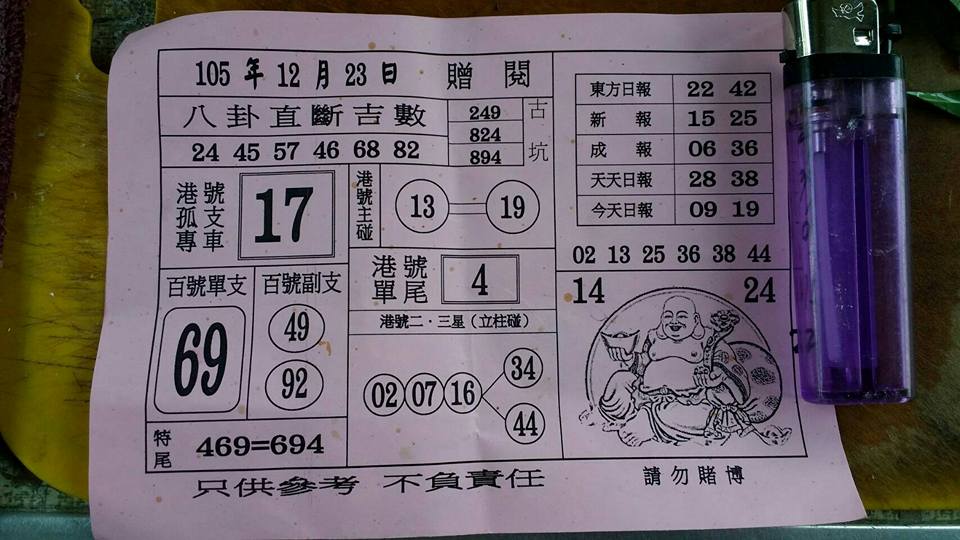 105 年 12 月 23 日 贈 閱
八卦直斷吉數
24 45 57 46 68 82
249
824
894
古坑
港號孤支專車
17
港號主碰
13 19
港號單尾
4
百號單支
69
百號副支
49
92
港號二．三星（立柱碰）
02 07 16
34
44
特尾
469=694
東方日報 22 42
新報 15 25
成報 06 36
天天日報 28 38
今天日報 09 19
02 13 25 36 38 44
14 24
只供參考 不負責任
請勿賭博